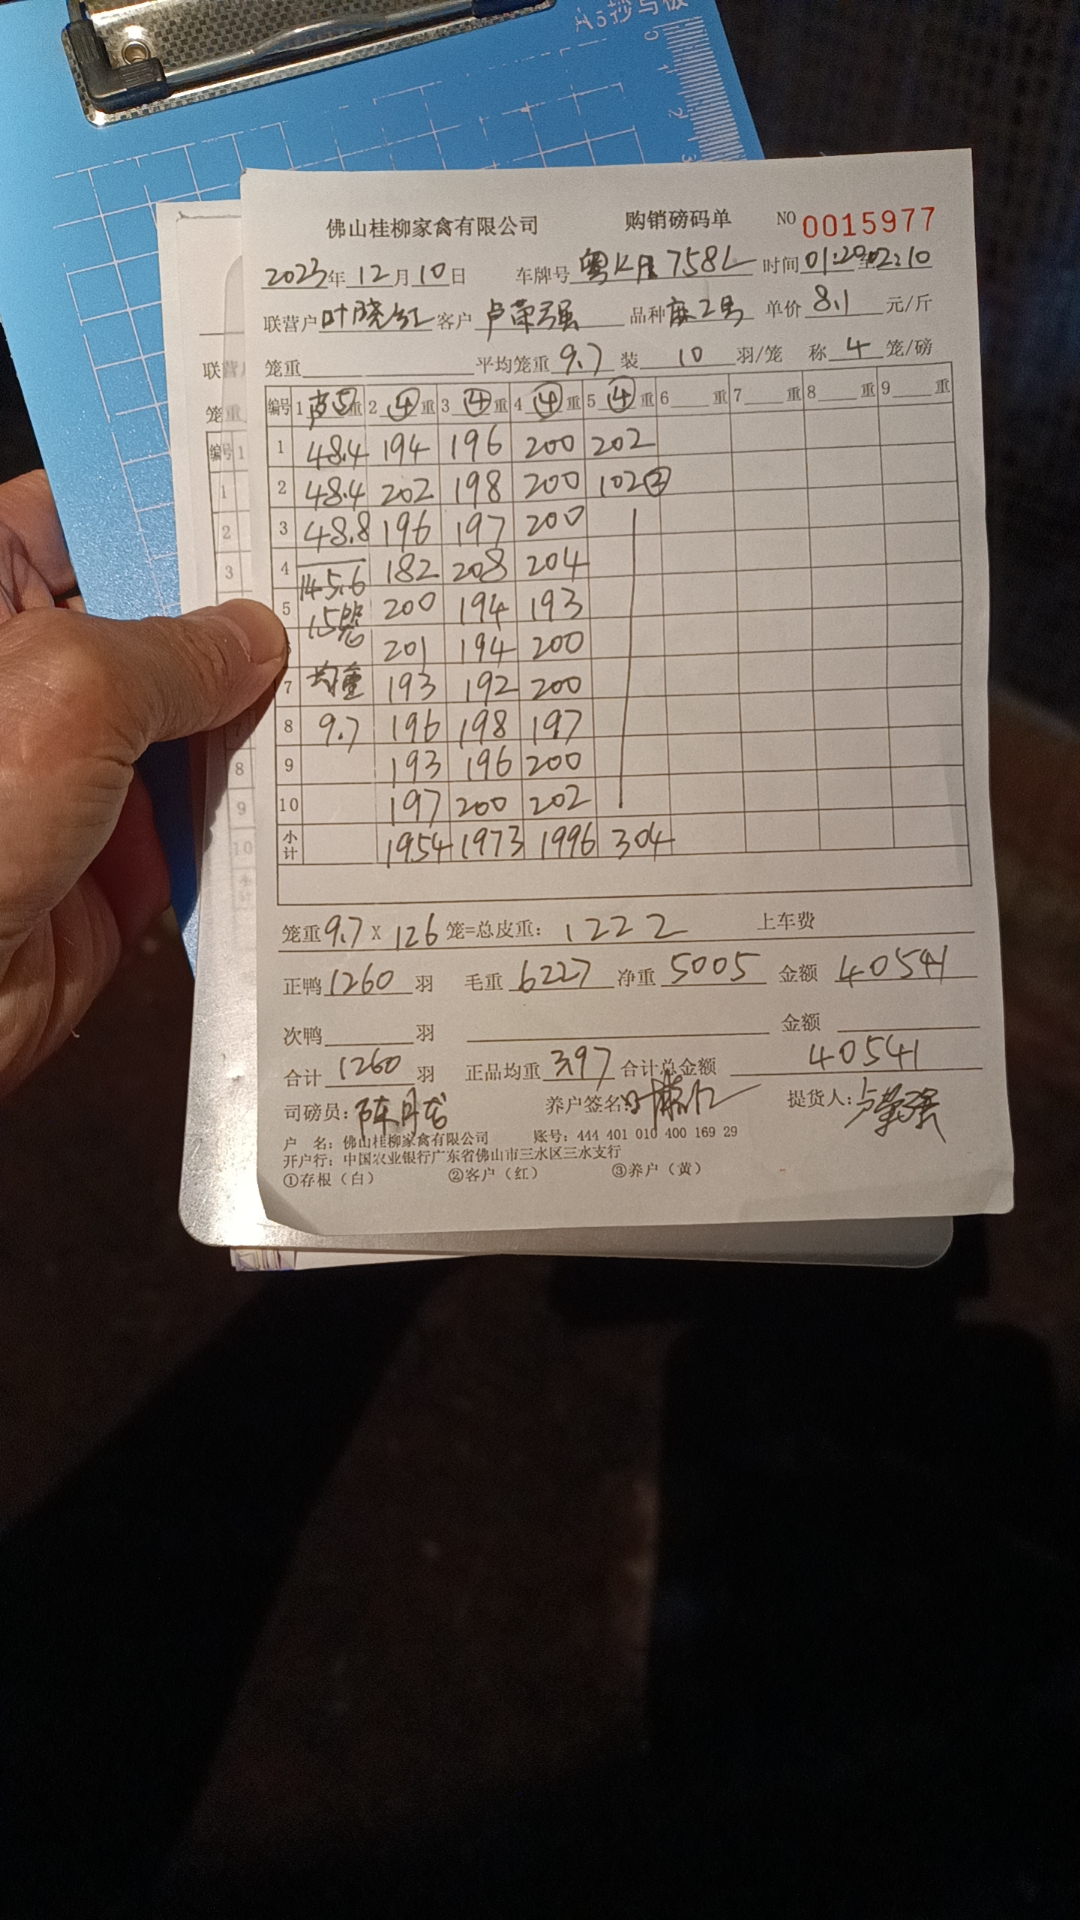 A5抄写板
0
1
2
3
佛山桂柳家禽有限公司 购销磅码单 NO 0015977
2023年12月10日 车牌号 758L 时间01:20至02:10
联营户叶晓红 客户 卢荣强 品种麻2号 单价 8.1 元/斤
笼重 平均笼重 9.7 装 10 羽/笼 称 4 笼/磅
编号 1 皮⑤重 2 ④重 3 ④重 4 ④重 5 ④ 6 重 7 重 8 重 9 重
1 48.4 194 196 200 202
2 48.4 202 198 200 102②
3 48.8 196 197 200
4 145.6 182 208 204
5 15笼 200 194 193
201 194 200
7 均重 193 192 200
8 9.7 196 198 197
9 193 196 200
10 197 200 202
小计 1954 1973 1996 304
笼重9.7 X 126 笼=总皮重: 1222 上车费
正鸭1260羽 毛重 6227 净重 5005 金额 40541
次鸭 羽 金额
合计 1260 羽 正品均重 3.97 合计总金额 40541
司磅员: 养户签名: 提货人:卢荣强
户 名: 佛山桂柳家禽有限公司 账号: 444 401 010 400 169 29
开户行: 中国农业银行广东省佛山市三水区三水支行
①存根（白） ②客户（红） ③养户（黄）
联营
笼重
编号 1
1
2
3
8
9
10